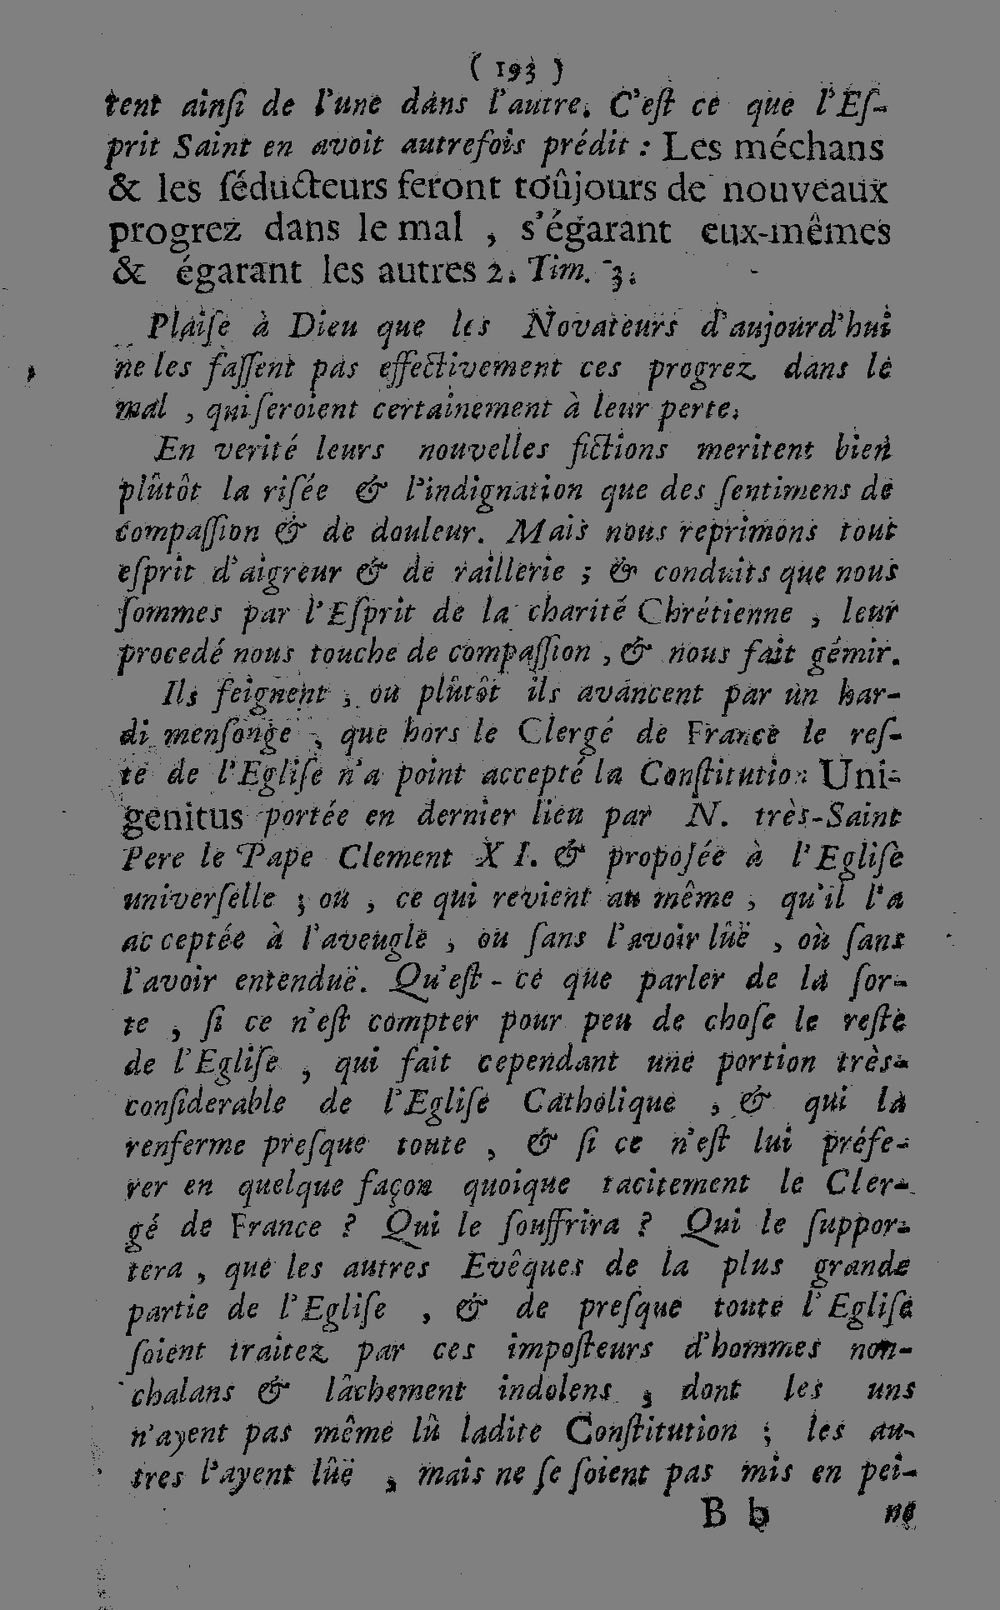 ( 193 )
tent ainſi de l'une dans l'autre. C'eſt ce que l'Eſ-
prit Saint en avoit autrefois prédit : Les méchans
& les ſéducteurs feront toûjours de nouveaux
progrez dans le mal , s'égarant eux-mêmes
& égarant les autres 2. Tim. 3.
Plaiſe à Dieu que les Novateurs d'aujourd'hui
ne les faſſent pas effectivement ces progrez dans le
mal , qui ſeroient certainement à leur perte.
En verité leurs nouvelles fictions meritent bien
plûtôt la riſée & l'indignation que des ſentimens de
compaſſion & de douleur. Mais nous reprimons tout
eſprit d'aigreur & de raillerie ; & conduits que nous
ſommes par l'Eſprit de la charité Chrétienne , leur
procedé nous touche de compaſſion , & nous fait gémir.
Ils feignent , ou plûtôt ils avancent par un har-
di menſonge , que hors le Clergé de France le reſ-
te de l'Egliſe n'a point accepté la Conſtitution Uni-
genitus portée en dernier lieu par N. très-Saint
Pere le Pape Clement XI. & propoſée à l'Egliſe
univerſelle ; ou , ce qui revient au même , qu'il l'a
acceptée à l'aveugle , ou ſans l'avoir lûë , où ſans
l'avoir entenduë. Qu'eſt-ce que parler de la ſor-
te , ſi ce n'eſt compter pour peu de choſe le reſte
de l'Egliſe , qui fait cependant une portion très-
conſiderable de l'Egliſe Catholique , & qui la
renferme preſque toute , & ſi ce n'eſt lui préfe-
rer en quelque façon quoique tacitement le Cler-
gé de France ? Qui le ſouffrira ? Qui le ſuppor-
tera , que les autres Evêques de la plus grande
partie de l'Egliſe , & de preſque toute l'Egliſe
ſoient traitez par ces impoſteurs d'hommes non-
chalans & lâchement indolens , dont les uns
n'ayent pas même lû ladite Conſtitution ; les au-
tres l'ayent lûë , mais ne ſe ſoient pas mis en pei-
B b ne